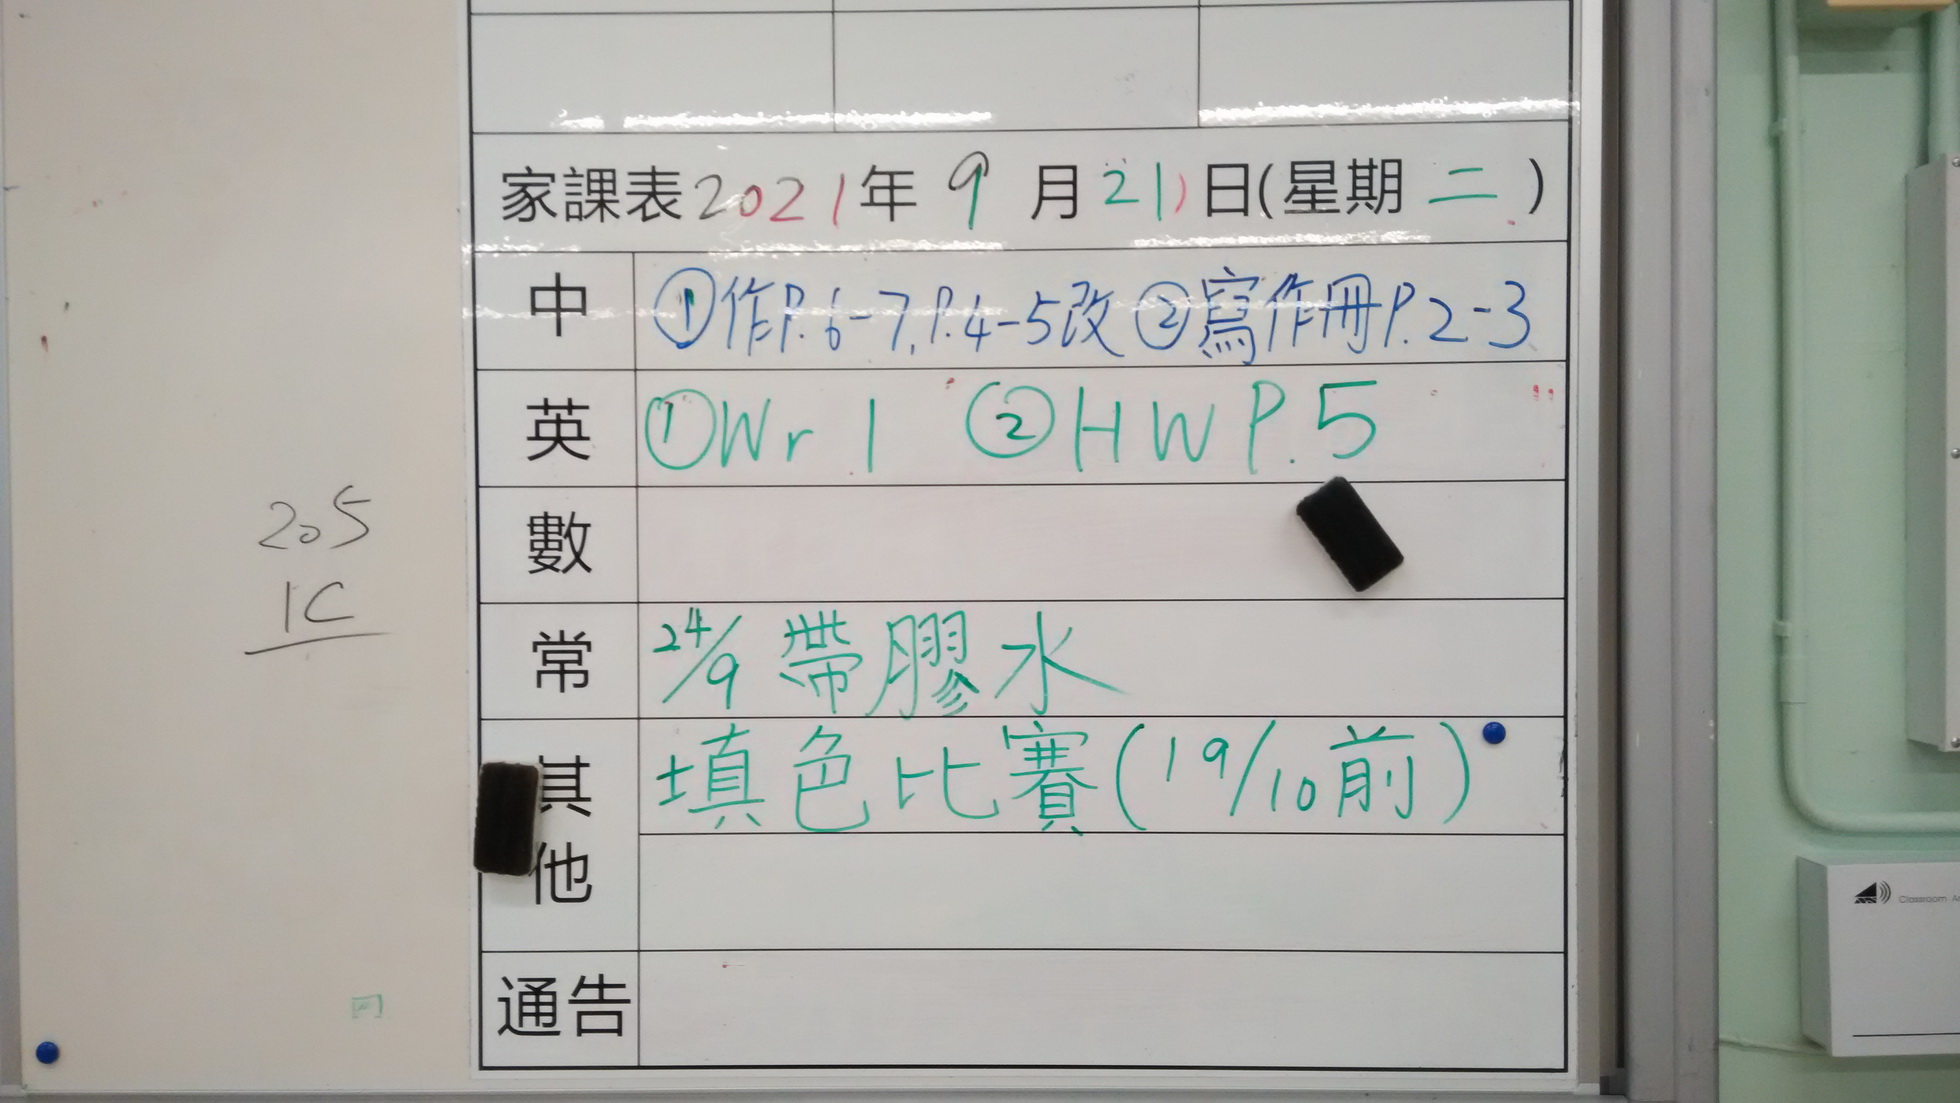 家課表2021年9月21日(星期二)
中 ①作P.6-7,P.4-5改 ②寫作冊P.2-3
英 ①Wr 1 ②HW P.5
數
常 24/9 帶膠水
其他 填色比賽(19/10前)
通告
205
1C
Classroom